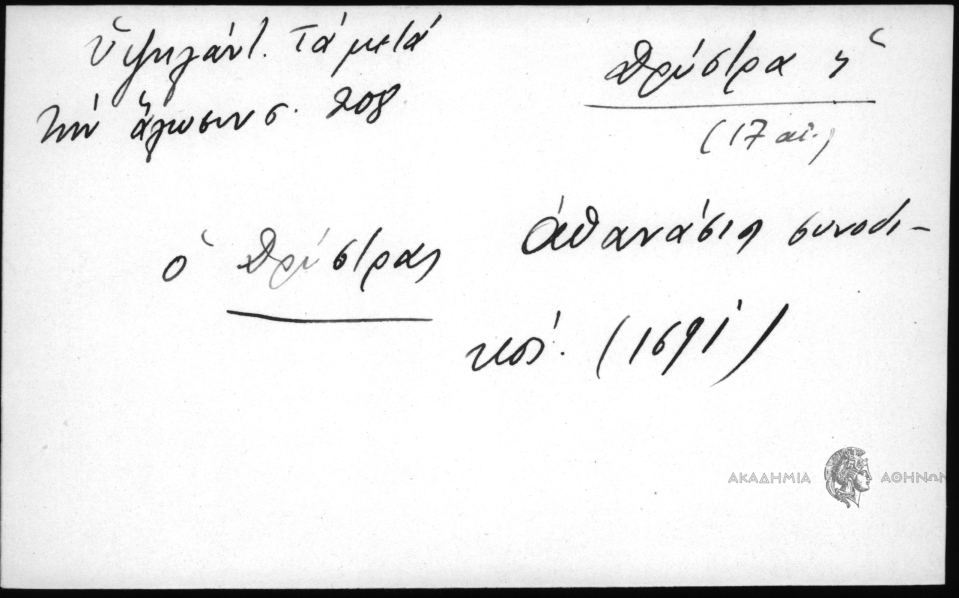 Ὑψηλάντ. Τὰ μετὰ
τὴν ἅλωσιν σ. 208
Θρύστρα ἡ
(17 αἰ.)
ὁ Θρύστρας Ἀθανάσιος συνοδι-
κός. (1691)
ΑΚΑΔΗΜΙΑ ΑΘΗΝΩΝ